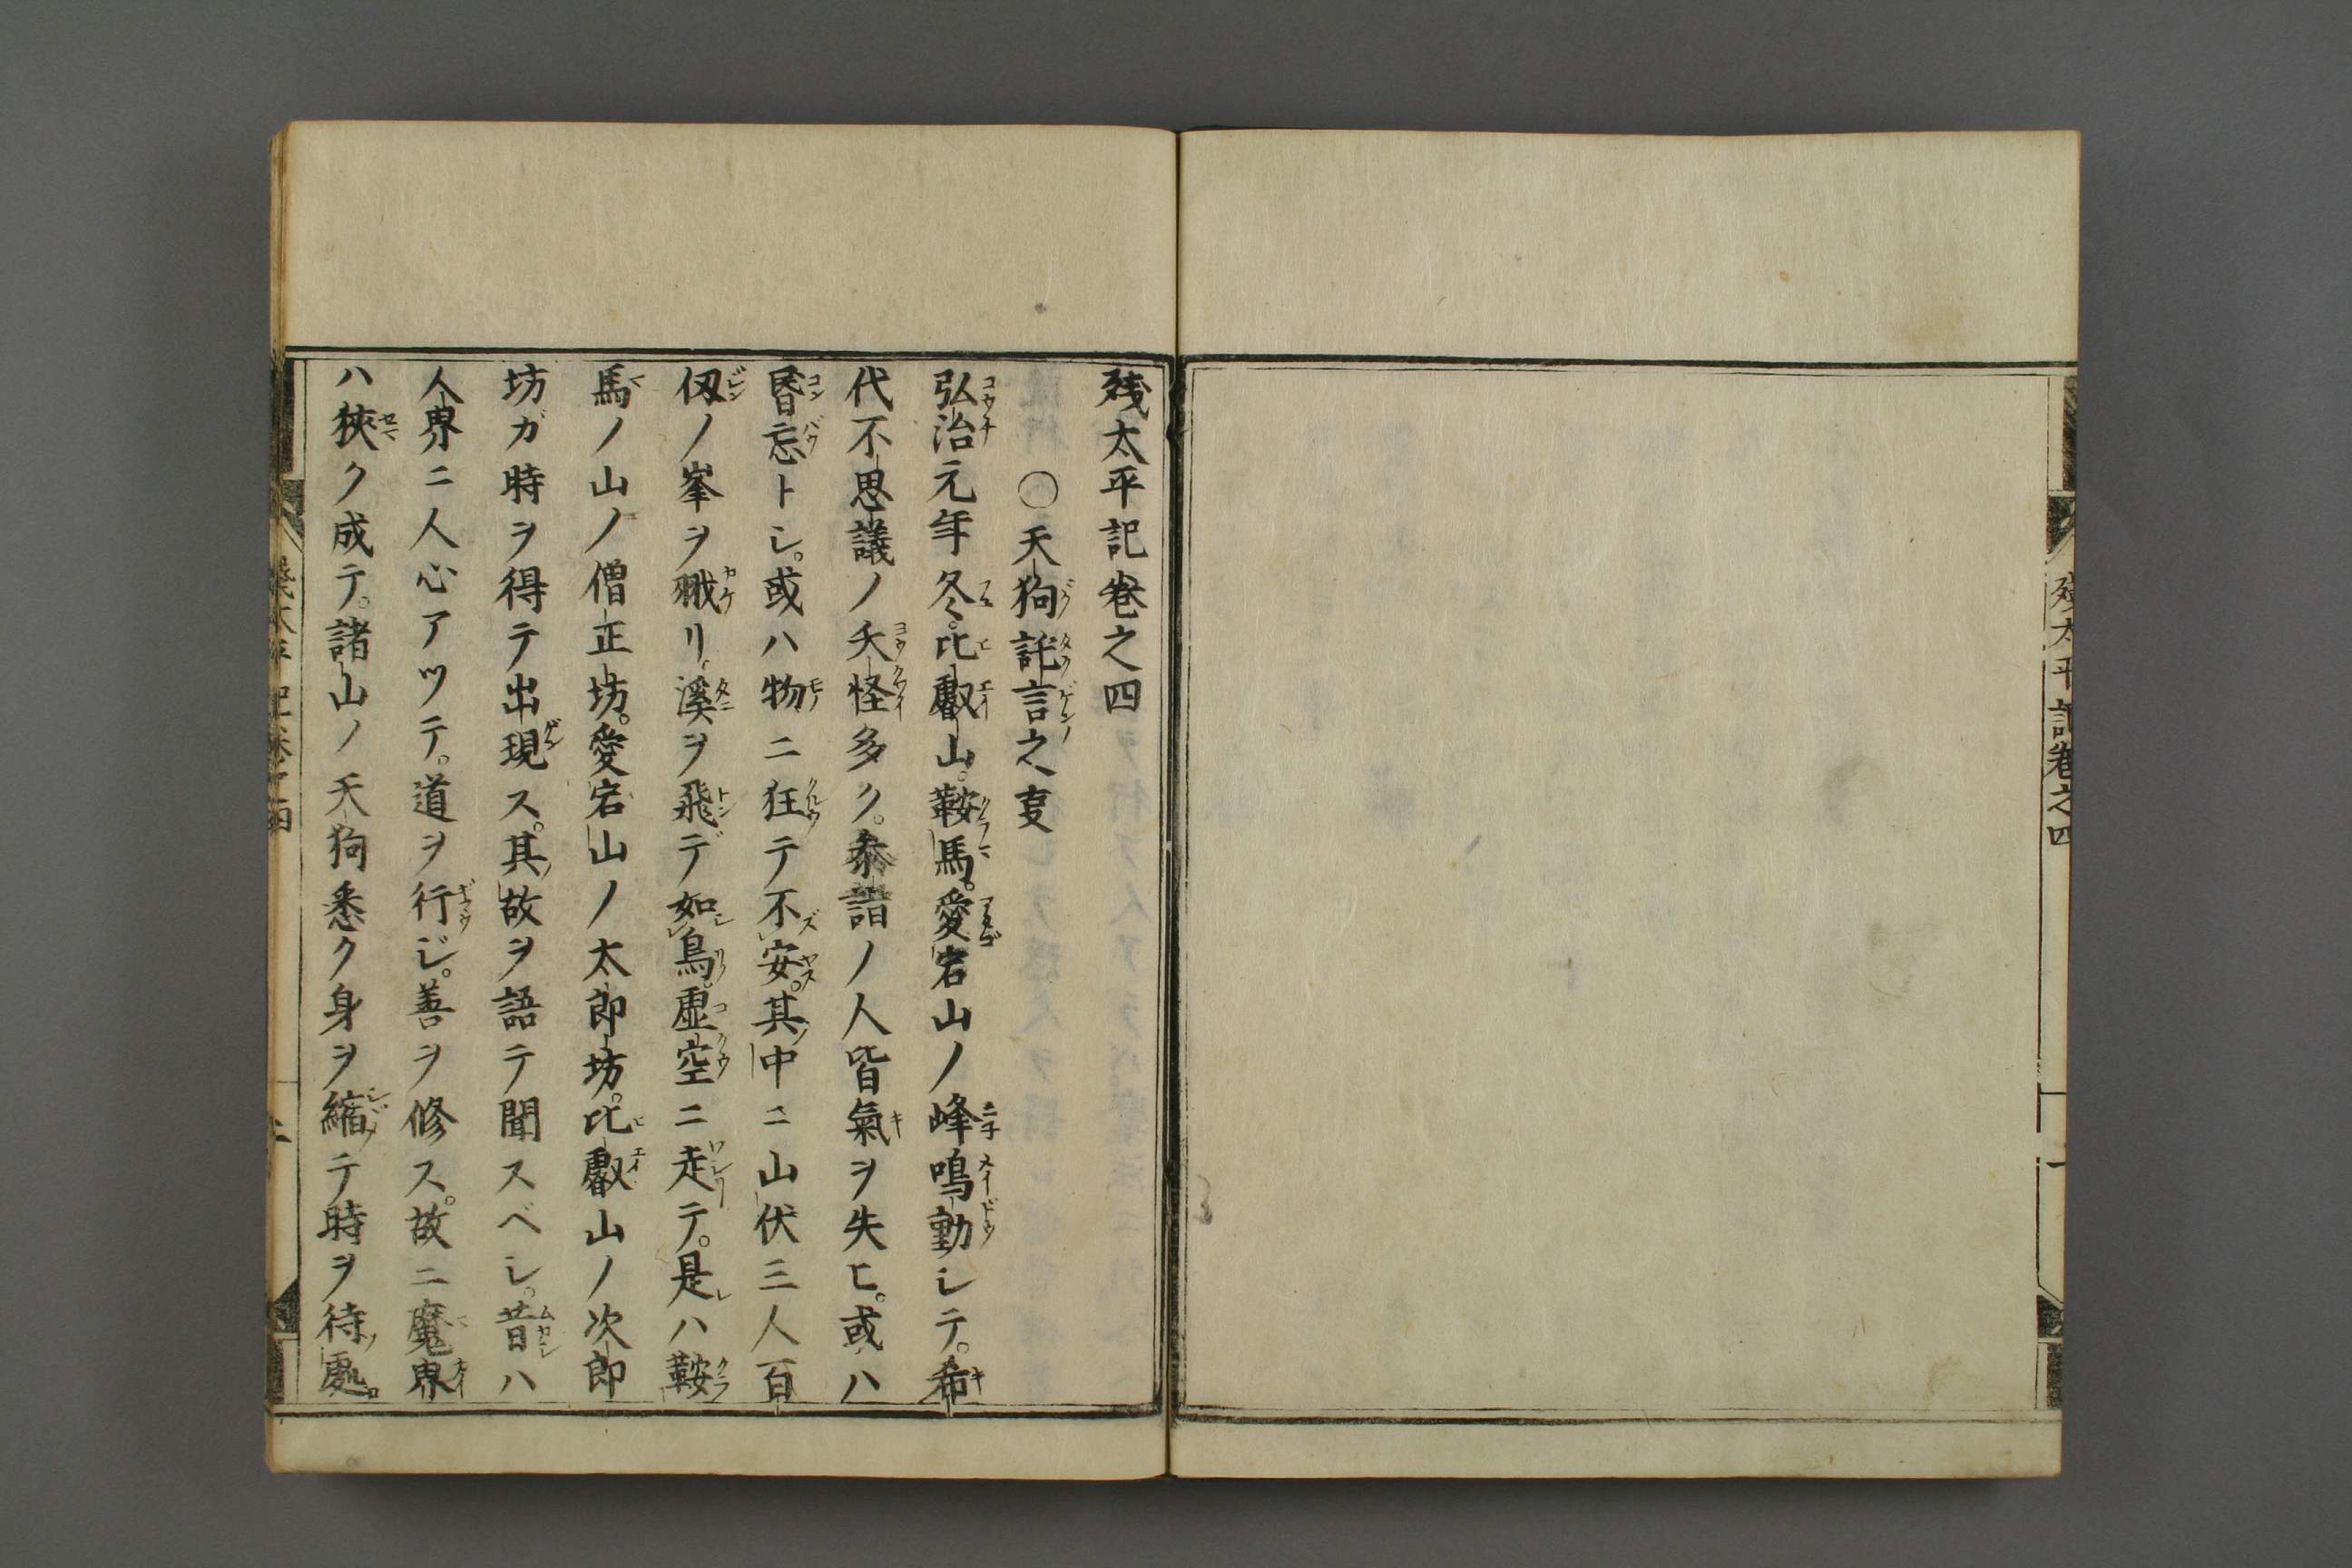 残太平記卷之四
残太平記卷之四
〇天狗託言之叓
弘治元年冬。比叡山。鞍馬。愛宕山ノ峰鳴動シテ。希
代不思議ノ夭怪多ク。叅詣ノ人皆氣ヲ失ヒ。或ハ
昏忘トシ。或ハ物ニ狂テ不安。其中ニ山伏三人百
仭ノ峯ヲ翔リ溪ヲ飛デ如鳥。虛空ニ走テ。是ハ鞍
馬ノ山ノ僧正坊。愛宕山ノ太郎坊。比叡山ノ次郎
坊ガ時ヲ得テ出現ス。其故ヲ語テ聞スベシ。昔ハ
人界ニ人心アツテ。道ヲ行ジ。善ヲ修ス。故ニ魔界
ハ狹ク成テ。諸山ノ天狗悉ク身ヲ縮テ時ヲ待處